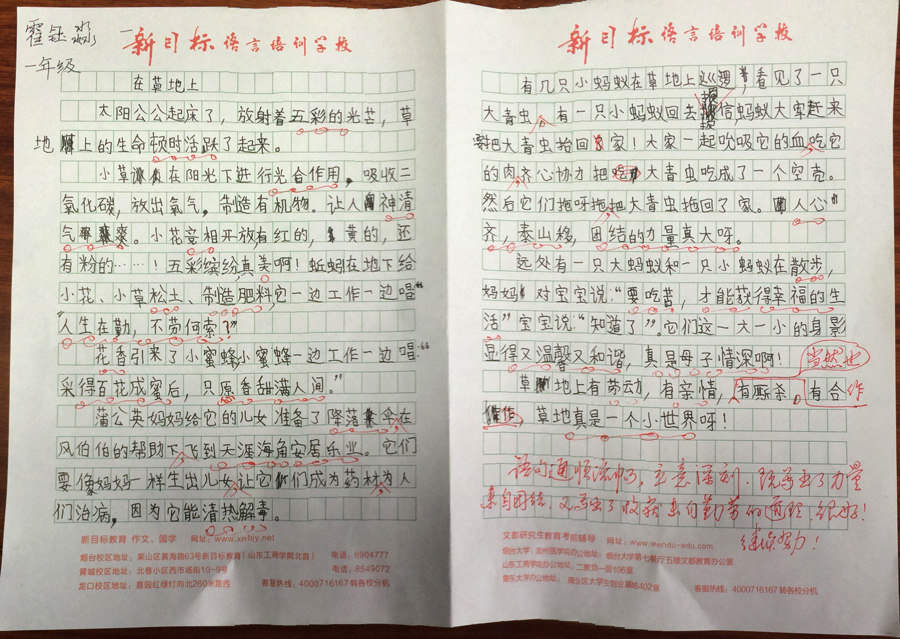 霍钰淼
一年级
新目标语言培训学校
在草地上
太阳公公起床了，放射着五彩的光芒，草
地上的生命顿时活跃了起来。
小草在阳光下进行光合作用，吸收二
氧化碳，放出氧气，制造有机物，让人神清
气爽。小花竞相开放有红的，黄的，还
有粉的……！五彩缤纷真美啊！蚯蚓在地下给
小花、小草松土、制造肥料，它一边工作一边唱“
人生在勤，不劳何索？”
花香引来了小蜜蜂小蜜蜂一边工作一边唱“
采得百花成蜜后，只愿香甜满人间。”
蒲公英妈妈给它的儿女准备了降落伞在
风伯伯的帮助下飞到天涯海角安居乐业。它们
要像妈妈一样生出儿女让它们成为药材为人
们治病，因为它能清热解毒。
新目标教育 作文、国学 网址：www.xnbjy.net
烟台校区地址：莱山区黄海路63号新目标教育（山东工商学院北首） 电话：6904777
黄城校区地址：北巷小区西市场街10-9号 电话：8549072
龙口校区地址：嘉园红绿灯向北260米路西 客服热线：4000716167转各校分机
新目标语言培训学校
有几只小蚂蚁在草地上巡逻，看见了一只
大青虫，有一只小蚂蚁回去报信蚂蚁大军赶来
把大青虫抬回家！大家一起吮吸它的血吃它
的肉齐心协力把大青虫吃成了一个空壳。
然后它们拖呀拖把大青虫拖回了家。人心
齐，泰山移，团结的力量真大呀。
远处有一只大蚂蚁和一只小蚂蚁在散步，
妈妈对宝宝说：“要吃苦，才能获得幸福的生
活”宝宝说：“知道了”。它们这一大一小的身影
显得又温馨又和谐，真是母子情深啊！
当然也
草地上有劳动，有亲情，有厮杀，有合作
，草地真是一个小世界呀！
语句通顺流畅，立意深刻，既写出了力量
来自团结，又写出了收获来自勤劳的道理，很好！
继续努力！
文都研究生教育考前辅导 网址：www.wendu-edu.com
烟台大学、滨州医学院办公地址：烟台大学第七餐厅五楼文都教育办公室
山东工商学院办公地址：二教负一层106室
鲁东大学办公地址：商业区大学生创业基地402室 客服热线：4000716167转各校分机